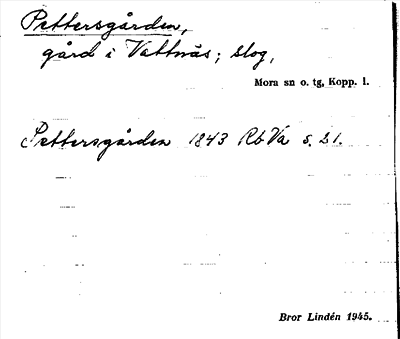 Pettersgården,
gård i Vattnäs; slog,
Mora sn o. tg, Kopp. l.
Pettersgården 1843 Rb Va s. 21.
Bror Lindén 1945.